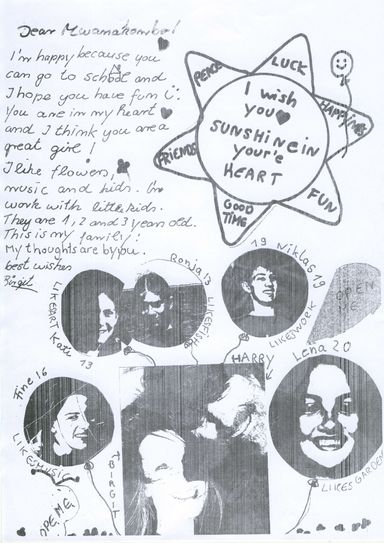 Dear Mwanakombo!
I'm happy because you
can go to school and
I hope you have fun
You are in my heart
and I think you are a
great girl!
I like flowers,
music and kids. I
work with little kids.
They are 1, 2 and 3 years old.
This is my family:
My thoughts are by you.
best wishes
Birgit
PEACE
LUCK
HAPPINESS
FUN
GOOD
TIME
FRIENDS
I wish
you
SUNSHINE in
your'e
HEART
LIKE ART Kathi
13
Ronja 13
LIKE FISH
19 Niklas 19
LIKES WORK
OPEN
ME
HARRY
Lena 20
LIKES GARDEN
Fine 16
LIKE MUSIC
BIRGIT
OPE ME